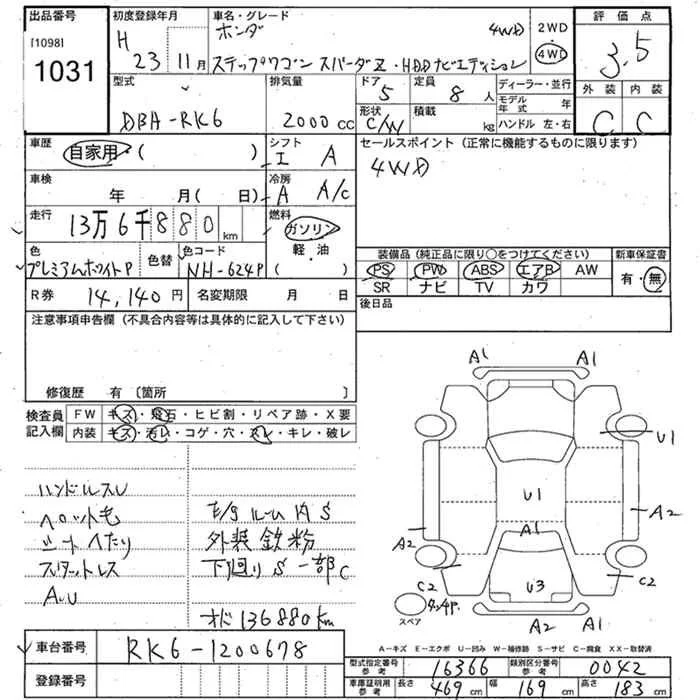 出品番号 [1098] 1031
初度登録年月 H 23 11月
車名・グレード ホンダ 4WD
ステップワゴン スパーダZ・HDDナビエディション
2WD
4WD
評価点 3.5
外装 内装
C C
型式 DBA-RK6
排気量 2000cc
ドア 5
定員 8人
形状 C/W
積載 kg
ディーラー・並行
モデル年式 年
ハンドル 左・右
車歴 自家用 ( )
シフト I A
セールスポイント (正常に機能するものに限ります)
4WD
車検 年 月( 日)
冷房 A A/c
走行 13万6千880km
燃料 ガソリン
軽・油
( )
色 プレミアムホワイトP
色替
色コード NH-624P
R券 14,140円
名変期限 月 日
装備品 (純正品に限り○をつけてください)
PS PW ABS エアB AW
SR ナビ TV カワ
新車保証書
有・無
後日品
注意事項申告欄 (不具合内容等は具体的に記入して下さい)
修復歴 有 〔箇所 〕
検査員記入欄
FW キズ・飛石・ヒビ割・リペア跡・X要
内装 キズ・汚レ・コゲ・穴・スレ・キレ・破レ
ハンドルスレ
ペット毛
シートへたり
スタットレス
AU
E/gルーム内S
外装鉄粉
下廻りS 一部C
オド136880km
A1 A1
U1
U1
A2
A1
A2
C2
U3
C2
スペア
A2 A1
車台番号 RK6-1200678
登録番号
A-キズ E-エクボ U-凹み W-補修跡 S-サビ C-腐食 XX-取替済
型式指定番号参考 16366
類別区分番号参考 0042
車庫証明用参考 長さ 469cm 幅 169cm 高さ 183cm